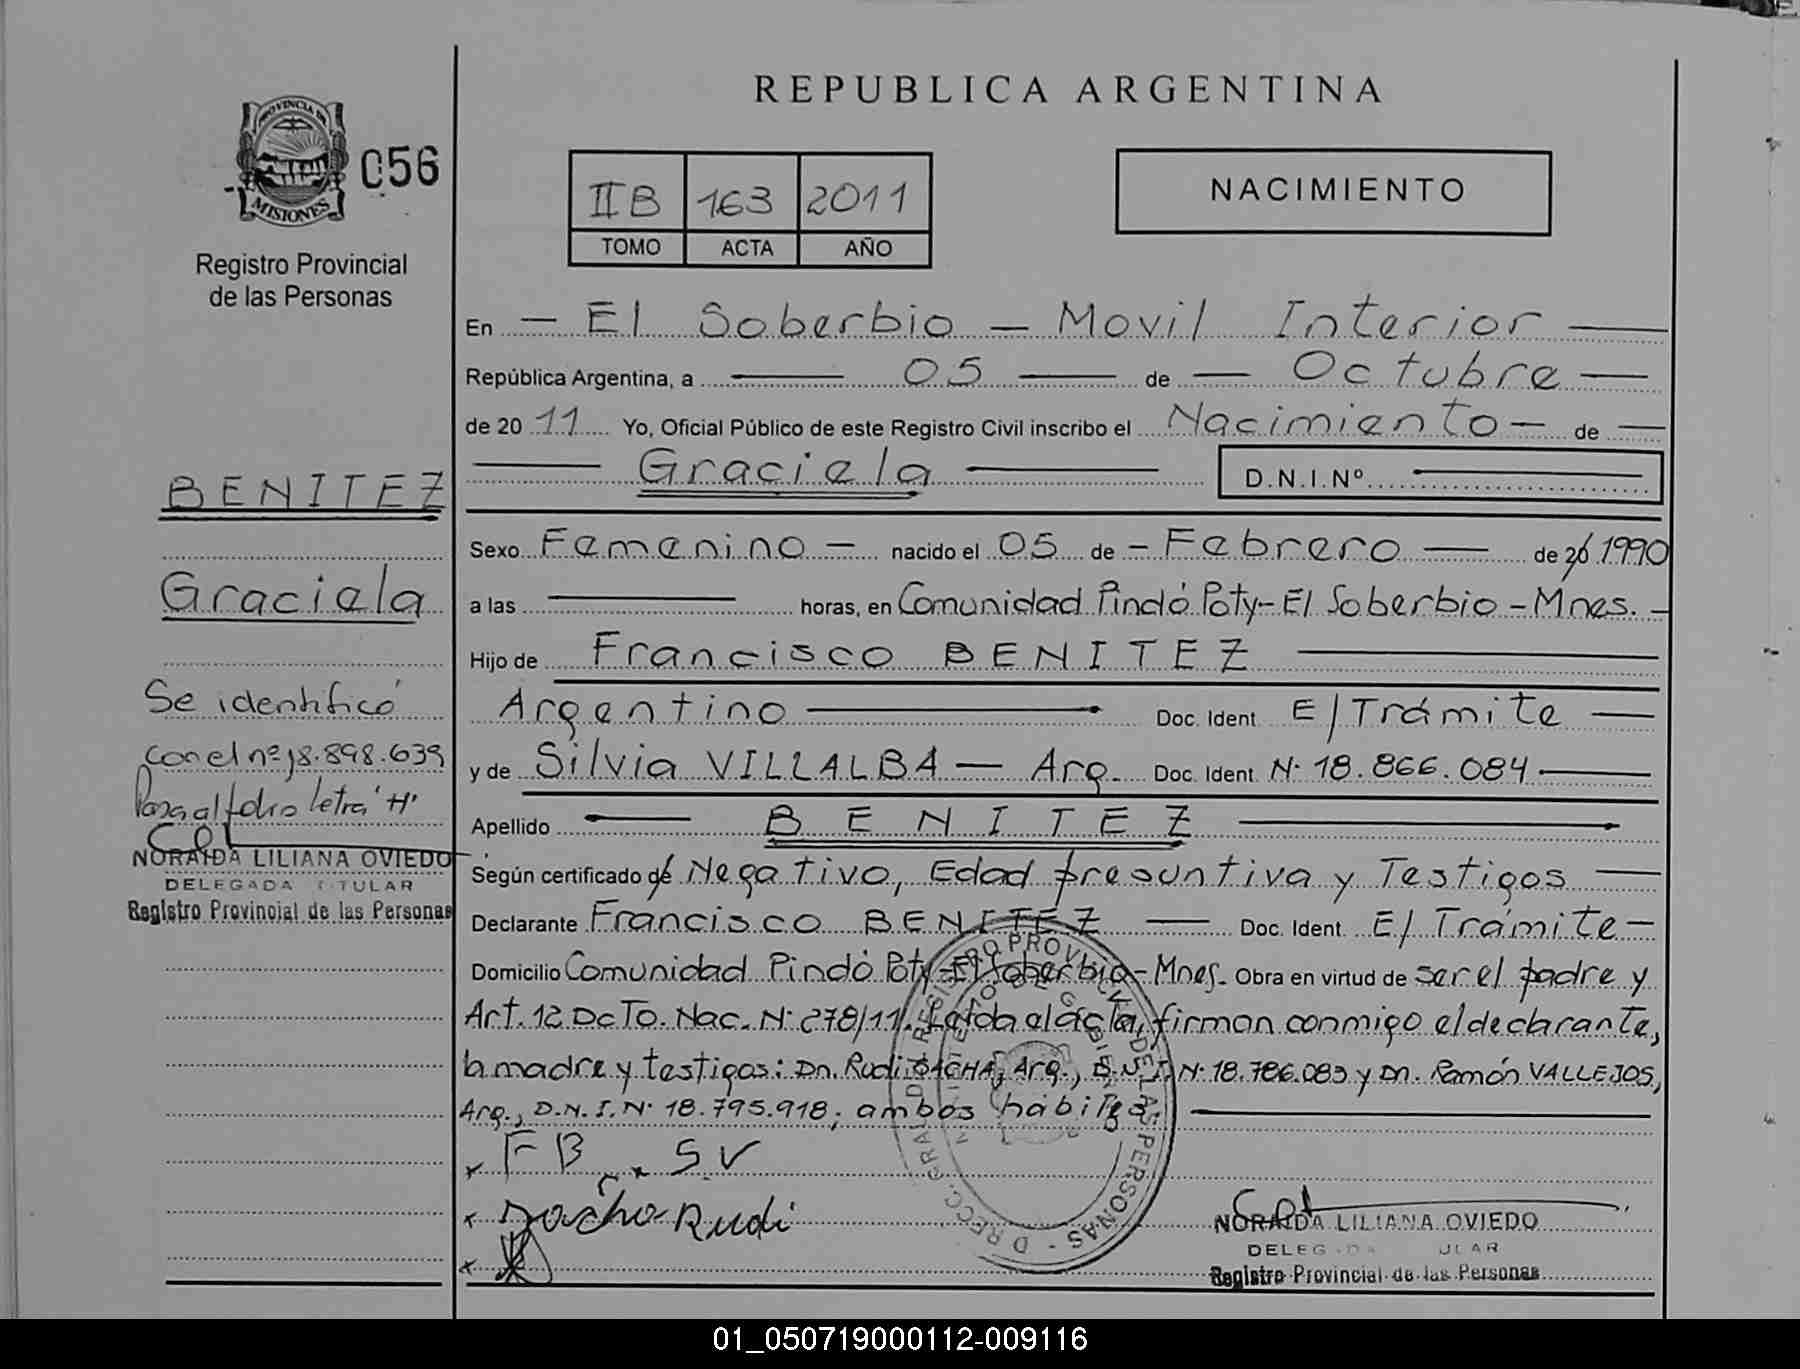 REPUBLICA ARGENTINA
PROVINCIA DE
MISIONES
056
Registro Provincial
de las Personas
II B 163 2011
TOMO ACTA AÑO
NACIMIENTO
En - El Soberbio - Movil Interior
República Argentina, a 05 de - Octubre
de 2011 Yo, Oficial Público de este Registro Civil inscribo el Nacimiento - de
Graciela
D.N.I.Nº
BENITEZ
Graciela
Se identificó
con el nº 18.898.639
Pasa al folio letra "H"
NORAIDA LILIANA OVIEDO
DELEGADA TITULAR
Registro Provincial de las Personas
Sexo Femenino - nacido el 05 de - Febrero de 20 1990
a las horas, en Comunidad Pindó Poty - El Soberbio - Mnes. -
Hijo de Francisco BENITEZ
Argentino Doc. Ident. E/Trámite
y de Silvia VILLALBA - Arg. Doc. Ident. Nº 18.866.084
Apellido BENITEZ
Según certificado de Negativo, Edad presuntiva y Testigos
Declarante Francisco BENITEZ Doc. Ident. E/Trámite -
Domicilio Comunidad Pindó Poty - El Soberbio - Mnes. Obra en virtud de ser el padre y
Art. 12 DcTo. Nac. Nº 278/11. Leída el acta, firman conmigo el declarante,
la madre y testigos: Dn. Rudi DACHA, Arg., D.N.I. Nº 18.786.083 y Dn. Ramón VALLEJOS,
Arg., D.N.I. Nº 18.795.918; ambos hábiles.
x FB x SV
x Dacha Rudi
x
REGISTRO PROVINCIAL DE LAS PERSONAS - DIRECC. GRAL.
NORAIDA LILIANA OVIEDO
DELEGADA TITULAR
Registro Provincial de las Personas
01_050719000112-009116